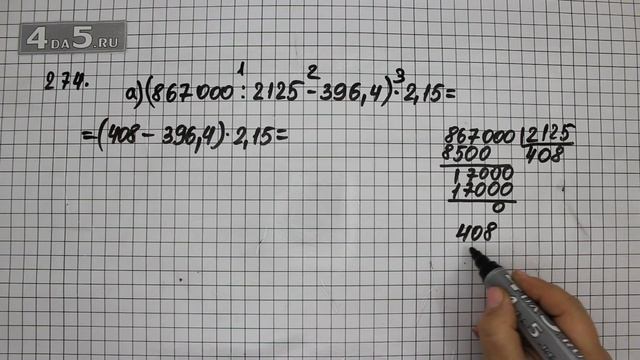 4DA5.RU
274.
1 2 3
а)(867000:2125-396,4)·2,15=
=(408-396,4)·2,15=
867000 2125
8500 408
17000
17000
0
408